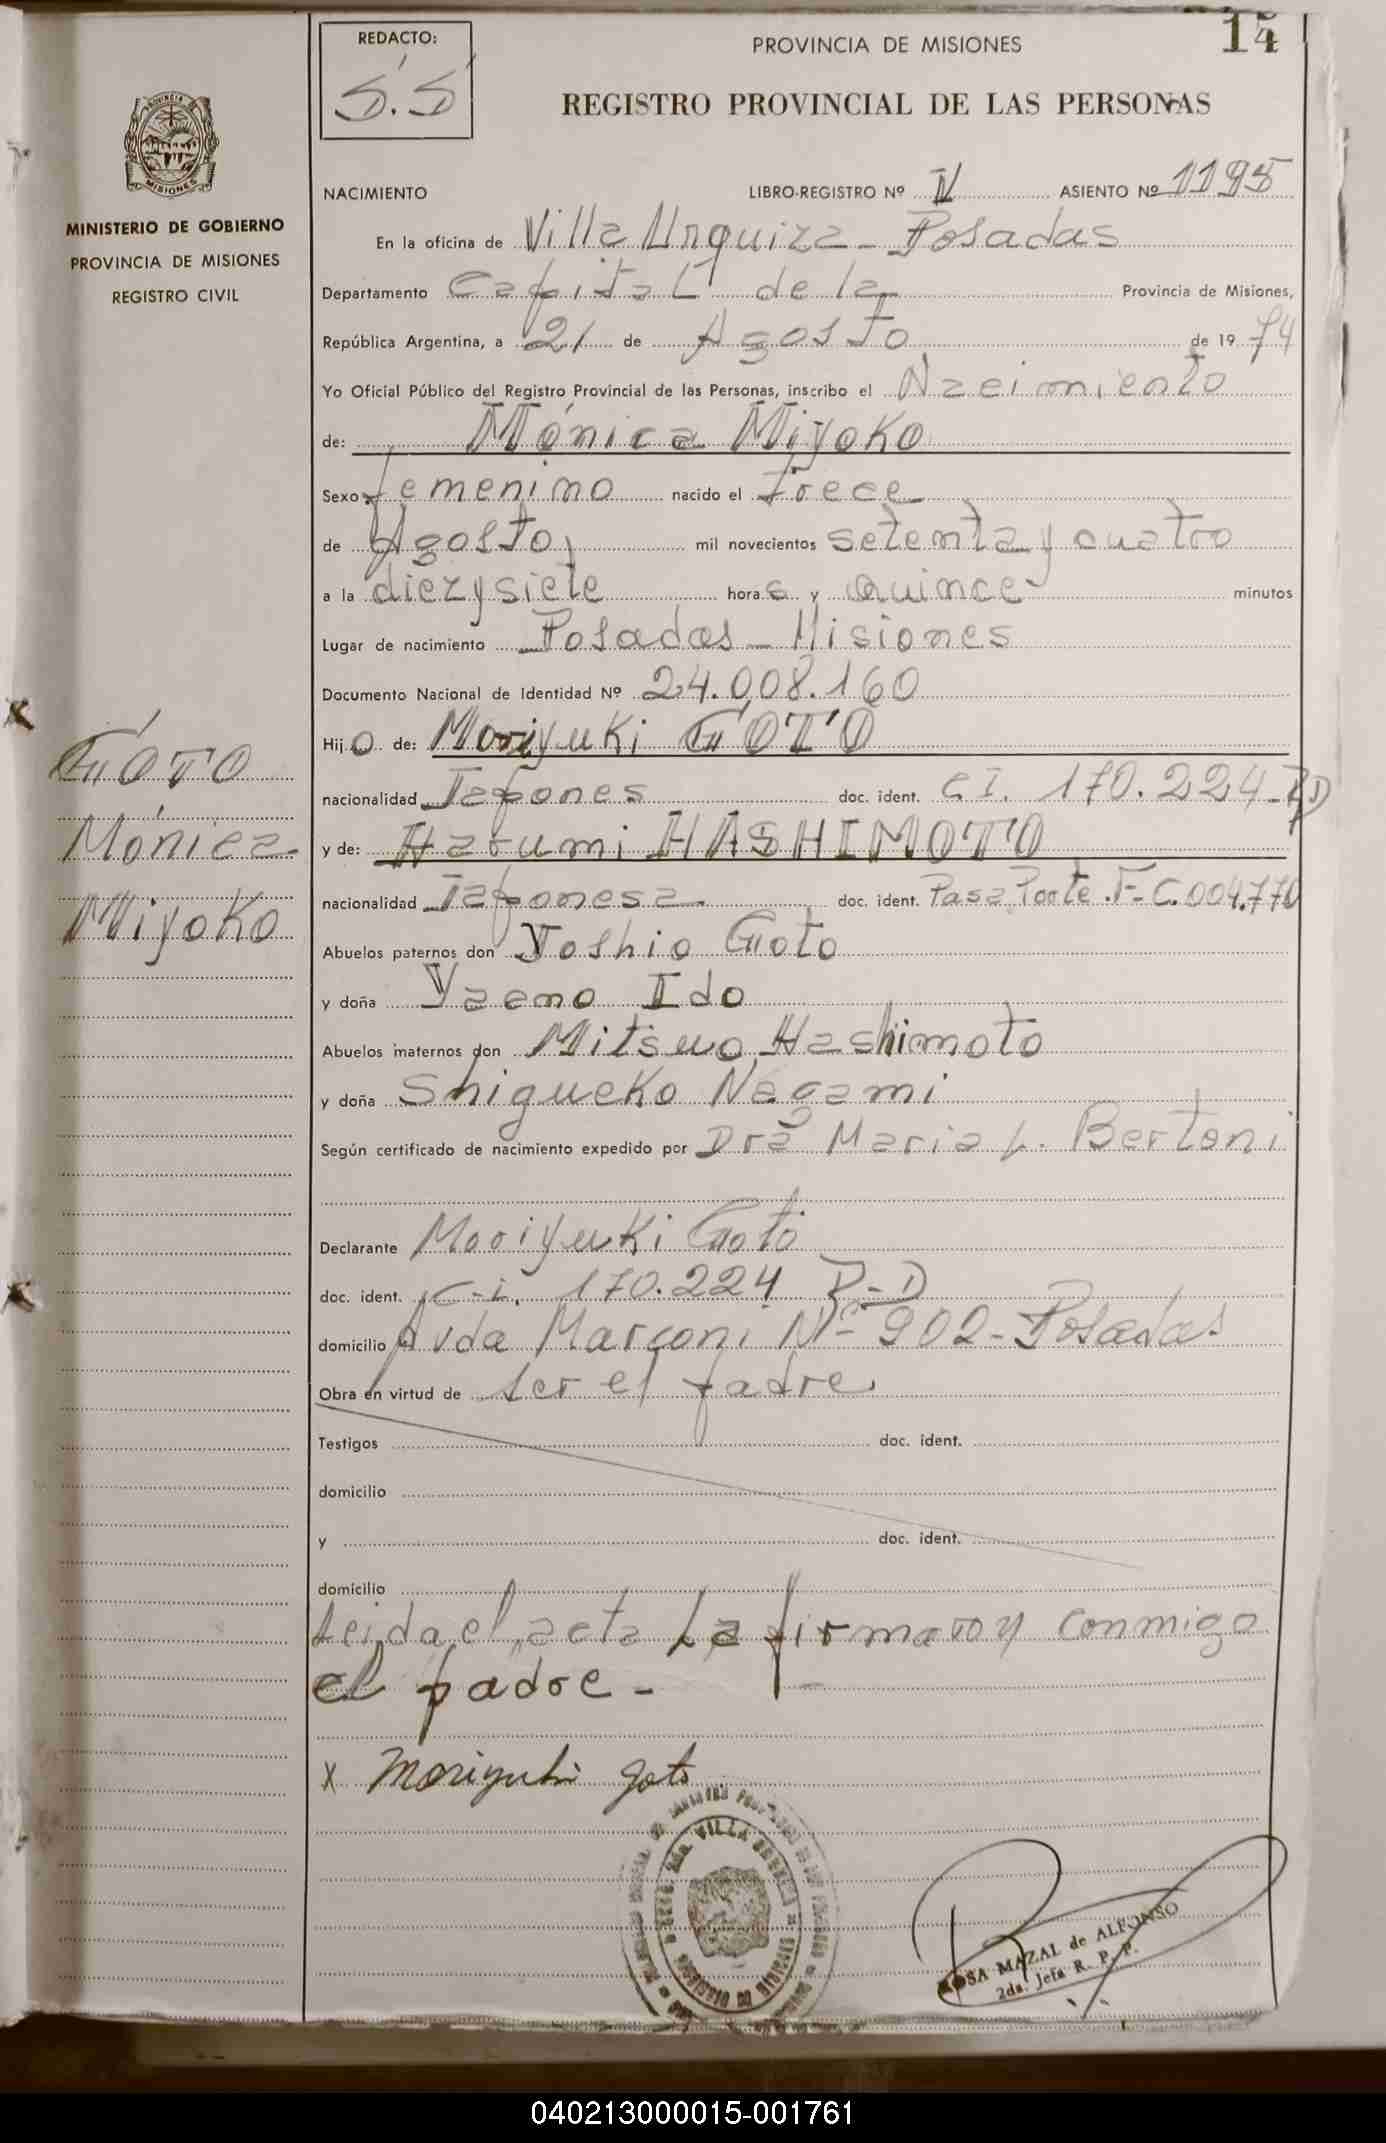 REDACTO:
S.S
PROVINCIA DE MISIONES
14
REGISTRO PROVINCIAL DE LAS PERSONAS
MISIONES
MINISTERIO DE GOBIERNO
PROVINCIA DE MISIONES
REGISTRO CIVIL
NACIMIENTO LIBRO-REGISTRO Nº IV ASIENTO Nº 1195
En la oficina de Villa Urquiza - Posadas
Departamento Capital de la Provincia de Misiones,
República Argentina, a 21 de Agosto de 1974
Yo Oficial Público del Registro Provincial de las Personas, inscribo el Nacimiento
de: Mónica Miyoko
Sexo femenino nacido el trece
de Agosto, mil novecientos setenta y cuatro
a la diez y siete horas y quince minutos
Lugar de nacimiento Posadas - Misiones
Documento Nacional de Identidad Nº 24.008.160
Hijo de: Moriyuki GOTO
nacionalidad Japones doc. ident. C.I. 170.224-P.D
y de: Harumi HASHIMOTO
nacionalidad Japonesa. doc. ident. Pasa Porte F-C.004.770
Abuelos paternos don Yoshio Goto
y doña Yaeno Ido
Abuelos maternos don Mitsuo Hashimoto
y doña Shigueko Nagami
Según certificado de nacimiento expedido por Dra Maria L. Bertoni
Declarante Moriyuki Goto
doc. ident. C-i. 170.224 P-D
domicilio Avda Marconi Nº 902 - Posadas
Obra en virtud de ser el padre
Testigos doc. ident.
domicilio
y doc. ident.
domicilio
Leida el acta La firmaron conmigo
el padre -
x Moriyuki Goto
GOTO
Mónica
Miyoko
VILLA URQUIZA
ROSA MAZAL de ALFONSO
2da. Jefa R. P. P.
040213000015-001761